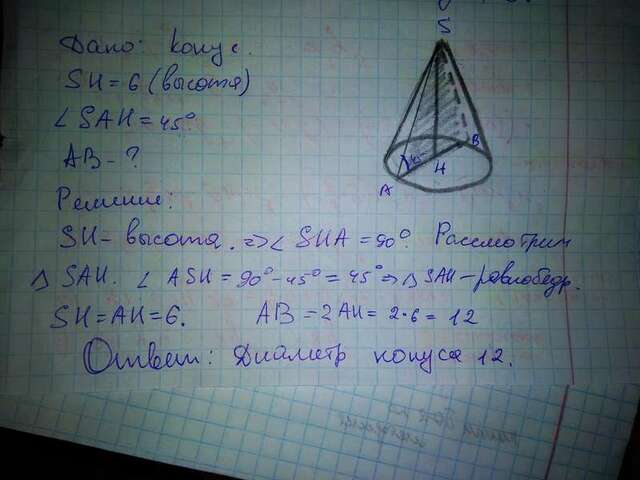 Дано: конус.
SH = 6 (высота)
∠ SAH = 45°.
AB - ?
Решение:
SH - высота. => ∠ SHA = 90°. Рассмотрим
△ SAH. ∠ ASH = 90° - 45° = 45° => △ SAH - равнобедр.
SH = AH = 6. AB = 2AH = 2·6 = 12
Ответ: Диаметр конуса 12.
S
45°
B
H
A